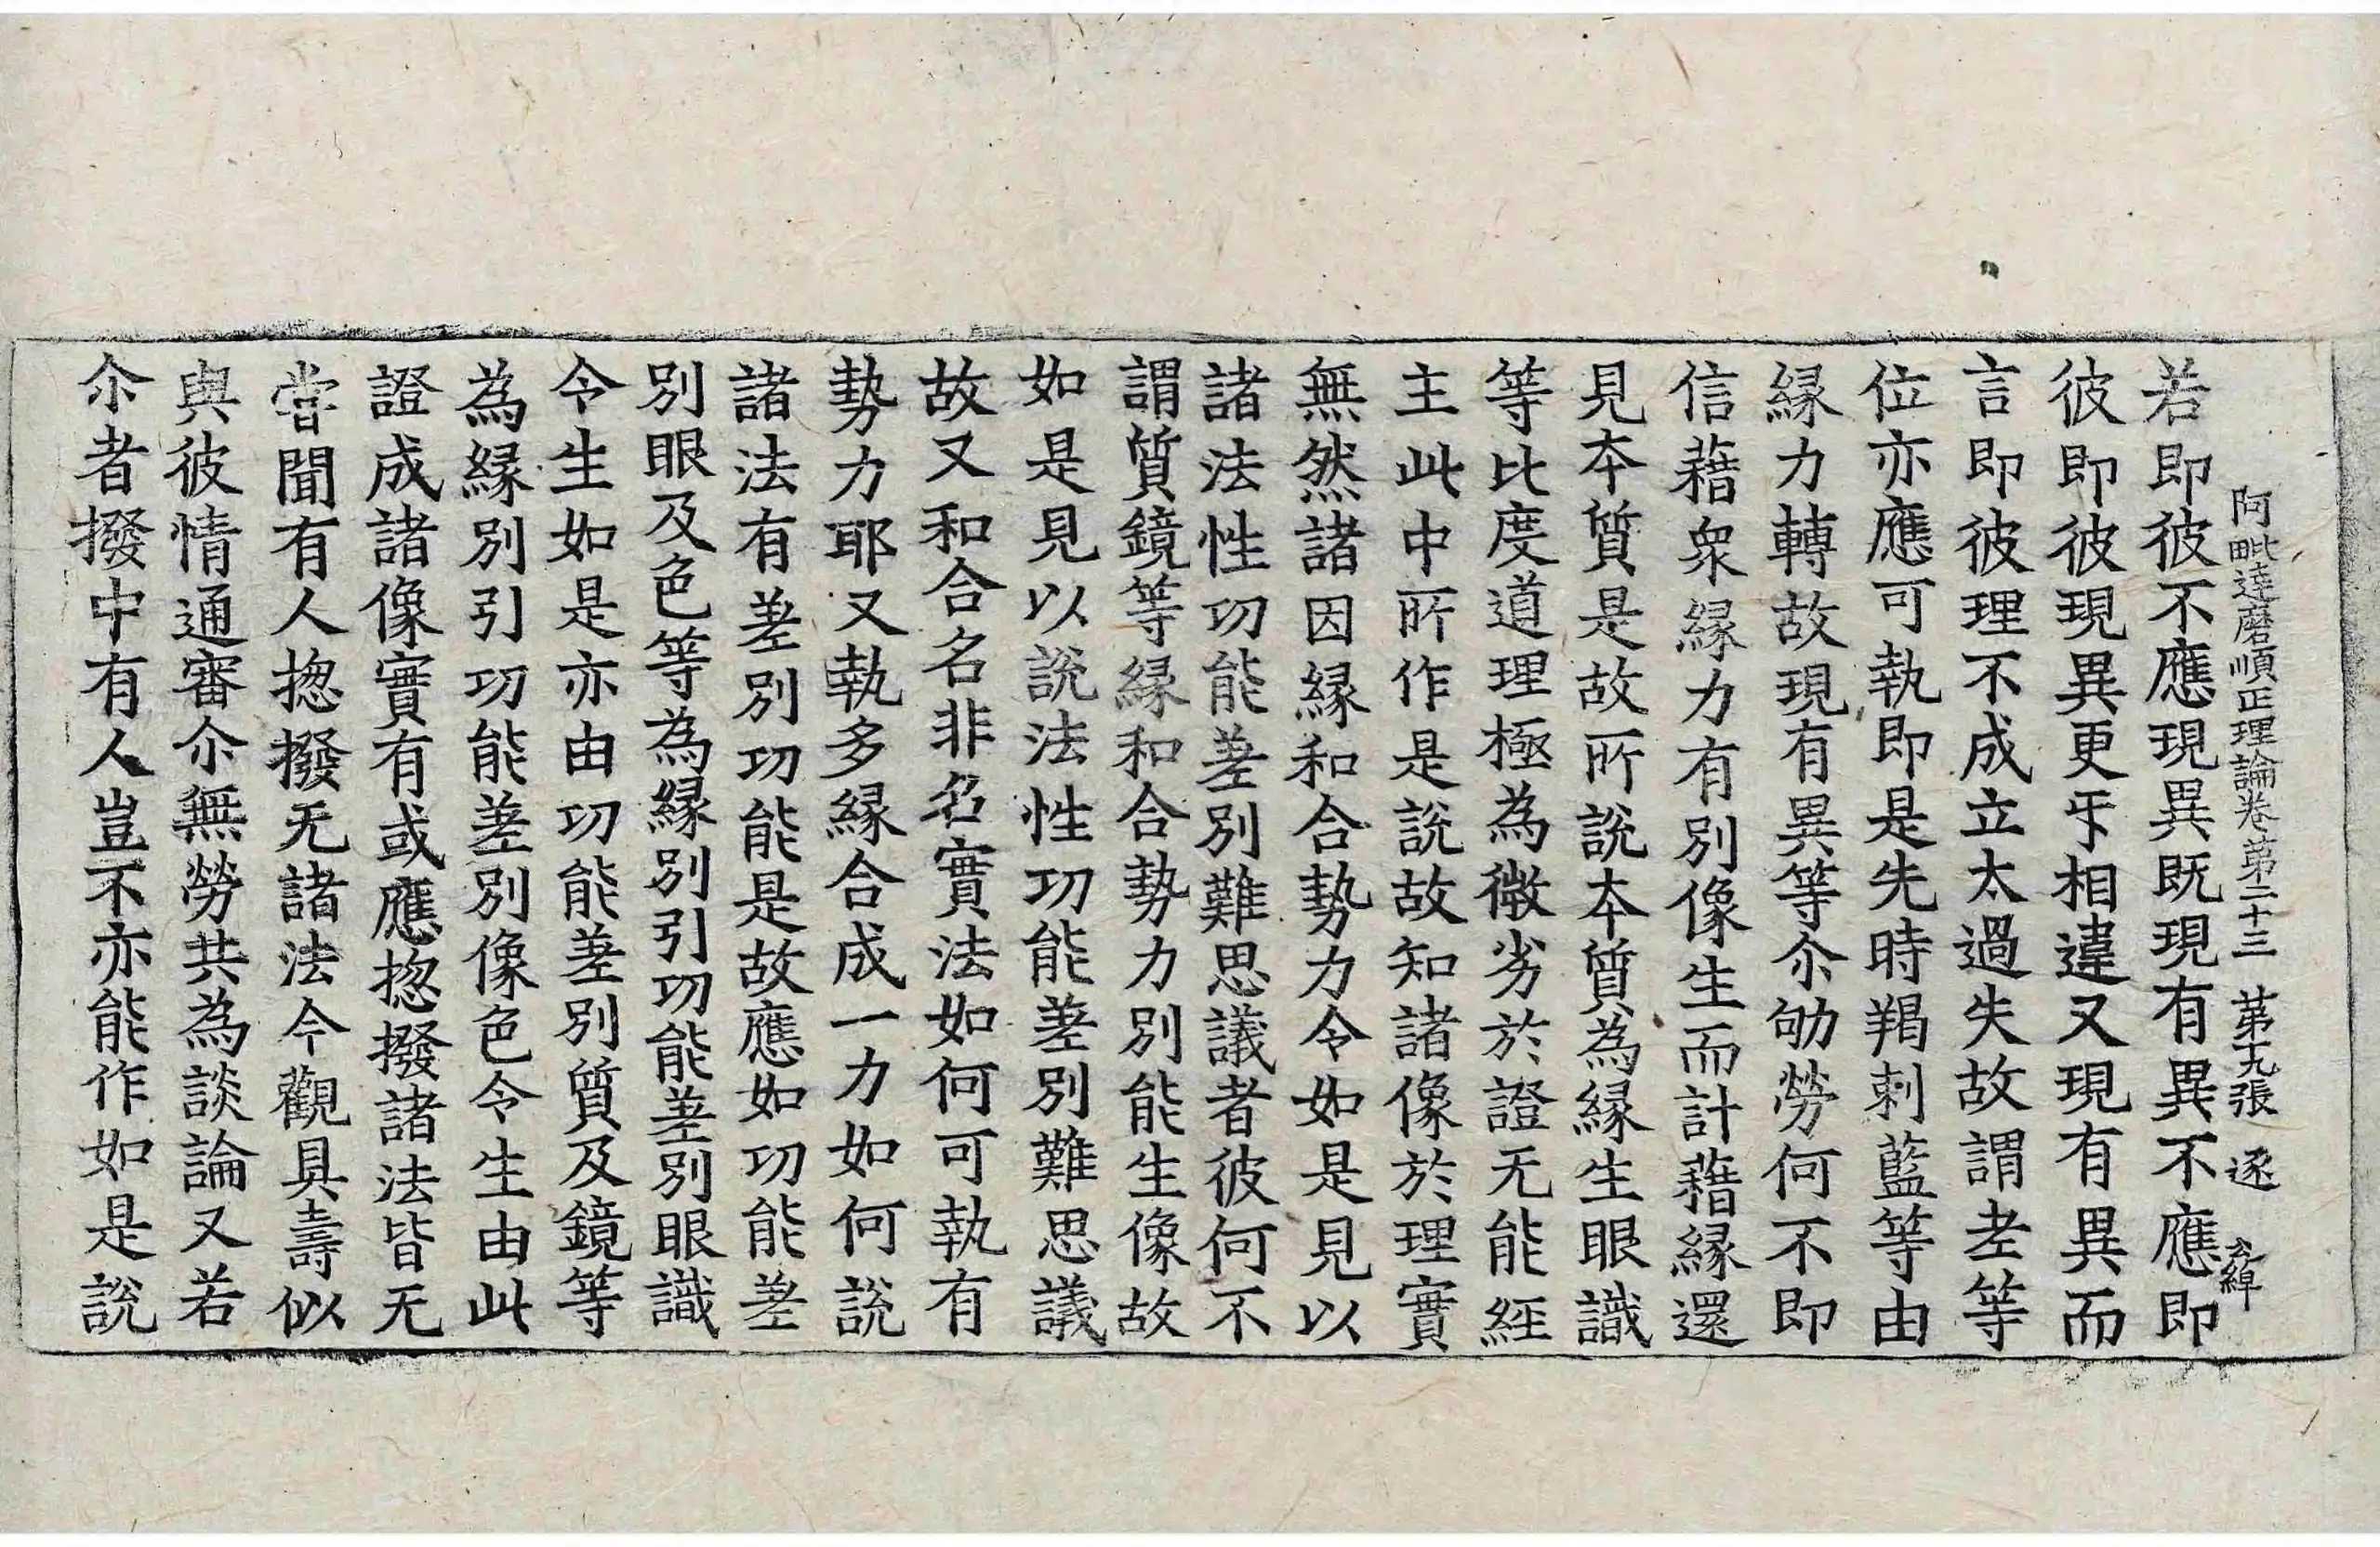 阿毗達磨順正理論卷第二十三 第九張 逐
若即彼不應現異既現有異不應即
彼即彼現異更乎相違又現有異而
言即彼理不成立太過失故謂老等
位亦應可執即是先時羯剌藍等由
緣力轉故現有異等尒劬勞何不即
信藉衆緣力有別像生而計藉緣還
見本質是故所說本質為緣生眼識
等比度道理極為微劣於證无能經
主此中所作是說故知諸像於理實
無然諸因緣和合勢力令如是見以
諸法性功能差別難思議者彼何不
謂質鏡等緣和合勢力別能生像故
如是見以說法性功能差別難思議
故又和合名非名實法如何可執有
勢力耶又執多緣合成一力如何說
諸法有差別功能是故應如功能差
別眼及色等為緣別引功能差別眼識
令生如是亦由功能差別質及鏡等
為緣別引功能差別像色令生由此
證成諸像實有或應揔撥諸法皆无
甞聞有人揔撥无諸法今觀具壽似
與彼情通審尒無勞共為談論又若
尒者撥中有人豈不亦能作如是說